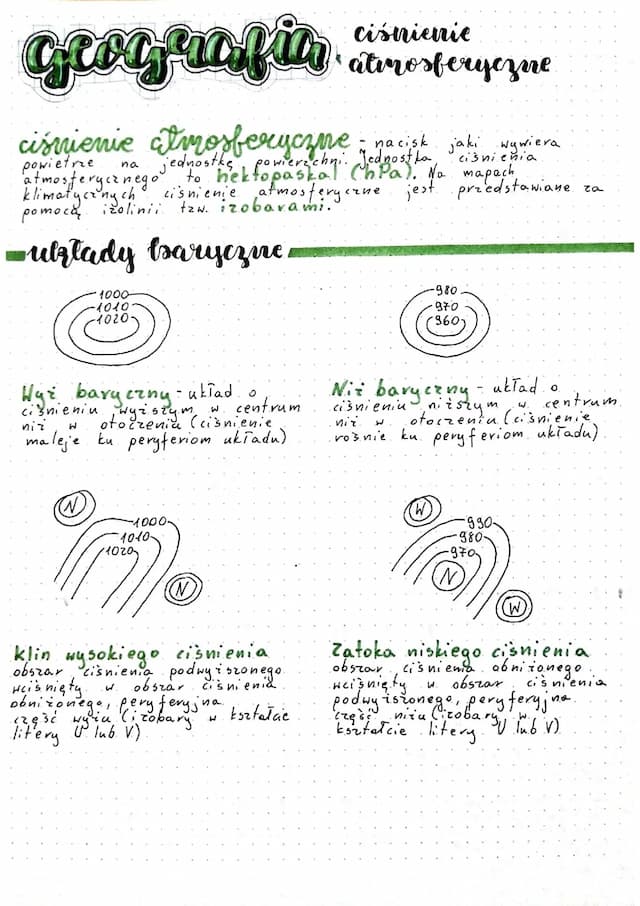 geografia
ciśnienie
atmosferyczne
ciśnienie atmosferyczne - nacisk jaki wywiera
powietrze na jednostkę powierzchni. Jednostka ciśnienia
atmosferycznego to hektopaskal (hPa). Na mapach
klimatycznych ciśnienie atmosferyczne jest przedstawiane za
pomocą izolinii tzw. izobarami.
układy baryczne
1000
1010
1020
980
970
960
Wyż baryczny - układ o
ciśnieniu wyższym w centrum
niż w otoczeniu (ciśnienie
maleje ku peryferiom układu)
Niż baryczny - układ o
ciśnieniu niższym w centrum
niż w otoczeniu (ciśnienie
rośnie ku peryferiom układu)
N
1000
1010
1020
N
W
990
980
970
N
W
Klin wysokiego ciśnienia
obszar ciśnienia podwyższonego
wciśnięty w obszar ciśnienia
obniżonego, peryferyjna
część wyżu (izobary w kształcie
litery U lub V)
Zatoka niskiego ciśnienia
obszar ciśnienia obniżonego
wciśnięty w obszar ciśnienia
podwyższonego, peryferyjna
część niżu (izobary w
kształcie litery U lub V)